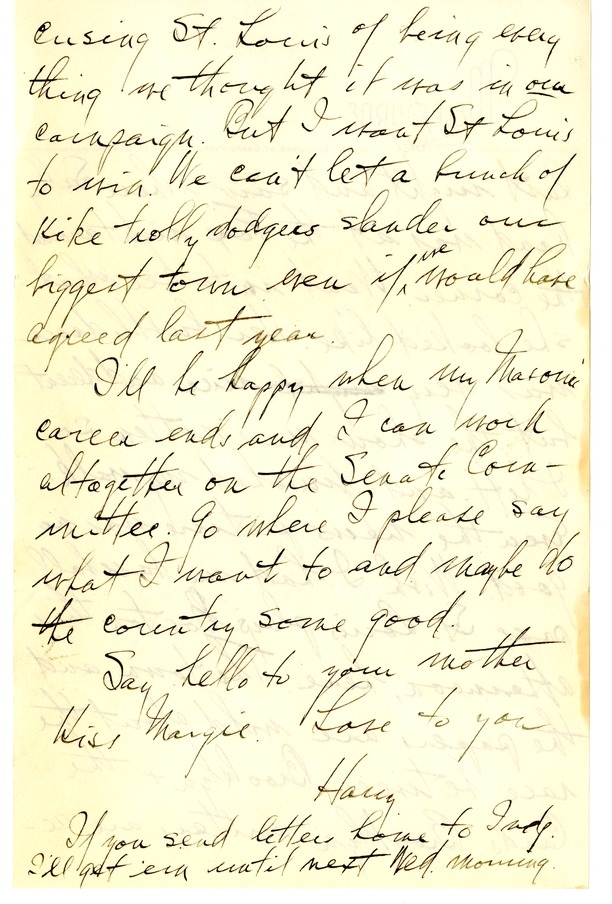 cusing St. Louis of being every
thing we thought it was in our
campaign. But I want St Louis
to win. We can't let a bunch of
Kike trolly dodgers slander our
biggest town even if we would have
agreed last year.
I'll be happy when my Masonic
career ends and I can work
altogether on the Senate Com-
mittee. Go where I please say
what I want to and maybe do
the country some good.
Say hello to your mother
Kiss Margie. Love to you
Harry
If you send letters home to Indp.
I'll get 'em until next Wed. morning.